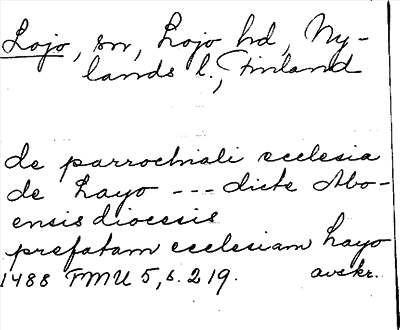 Lojo, sn, Lojo hd, Ny-
lands l., Finland
de parrochiali ecclesia
de Layo --- dicte Abo-
ensis diocesis
prefatam ecclesiam Layo
1488 FMU 5, s. 219. avskr.